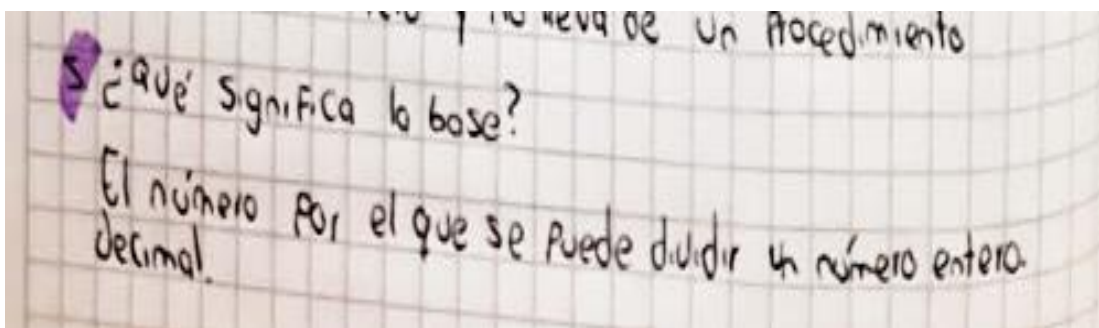 y no lleva de un Procedimiento
5 ¿Qué significa la base?
El número por el que se puede dividir un número entero.
decimal.